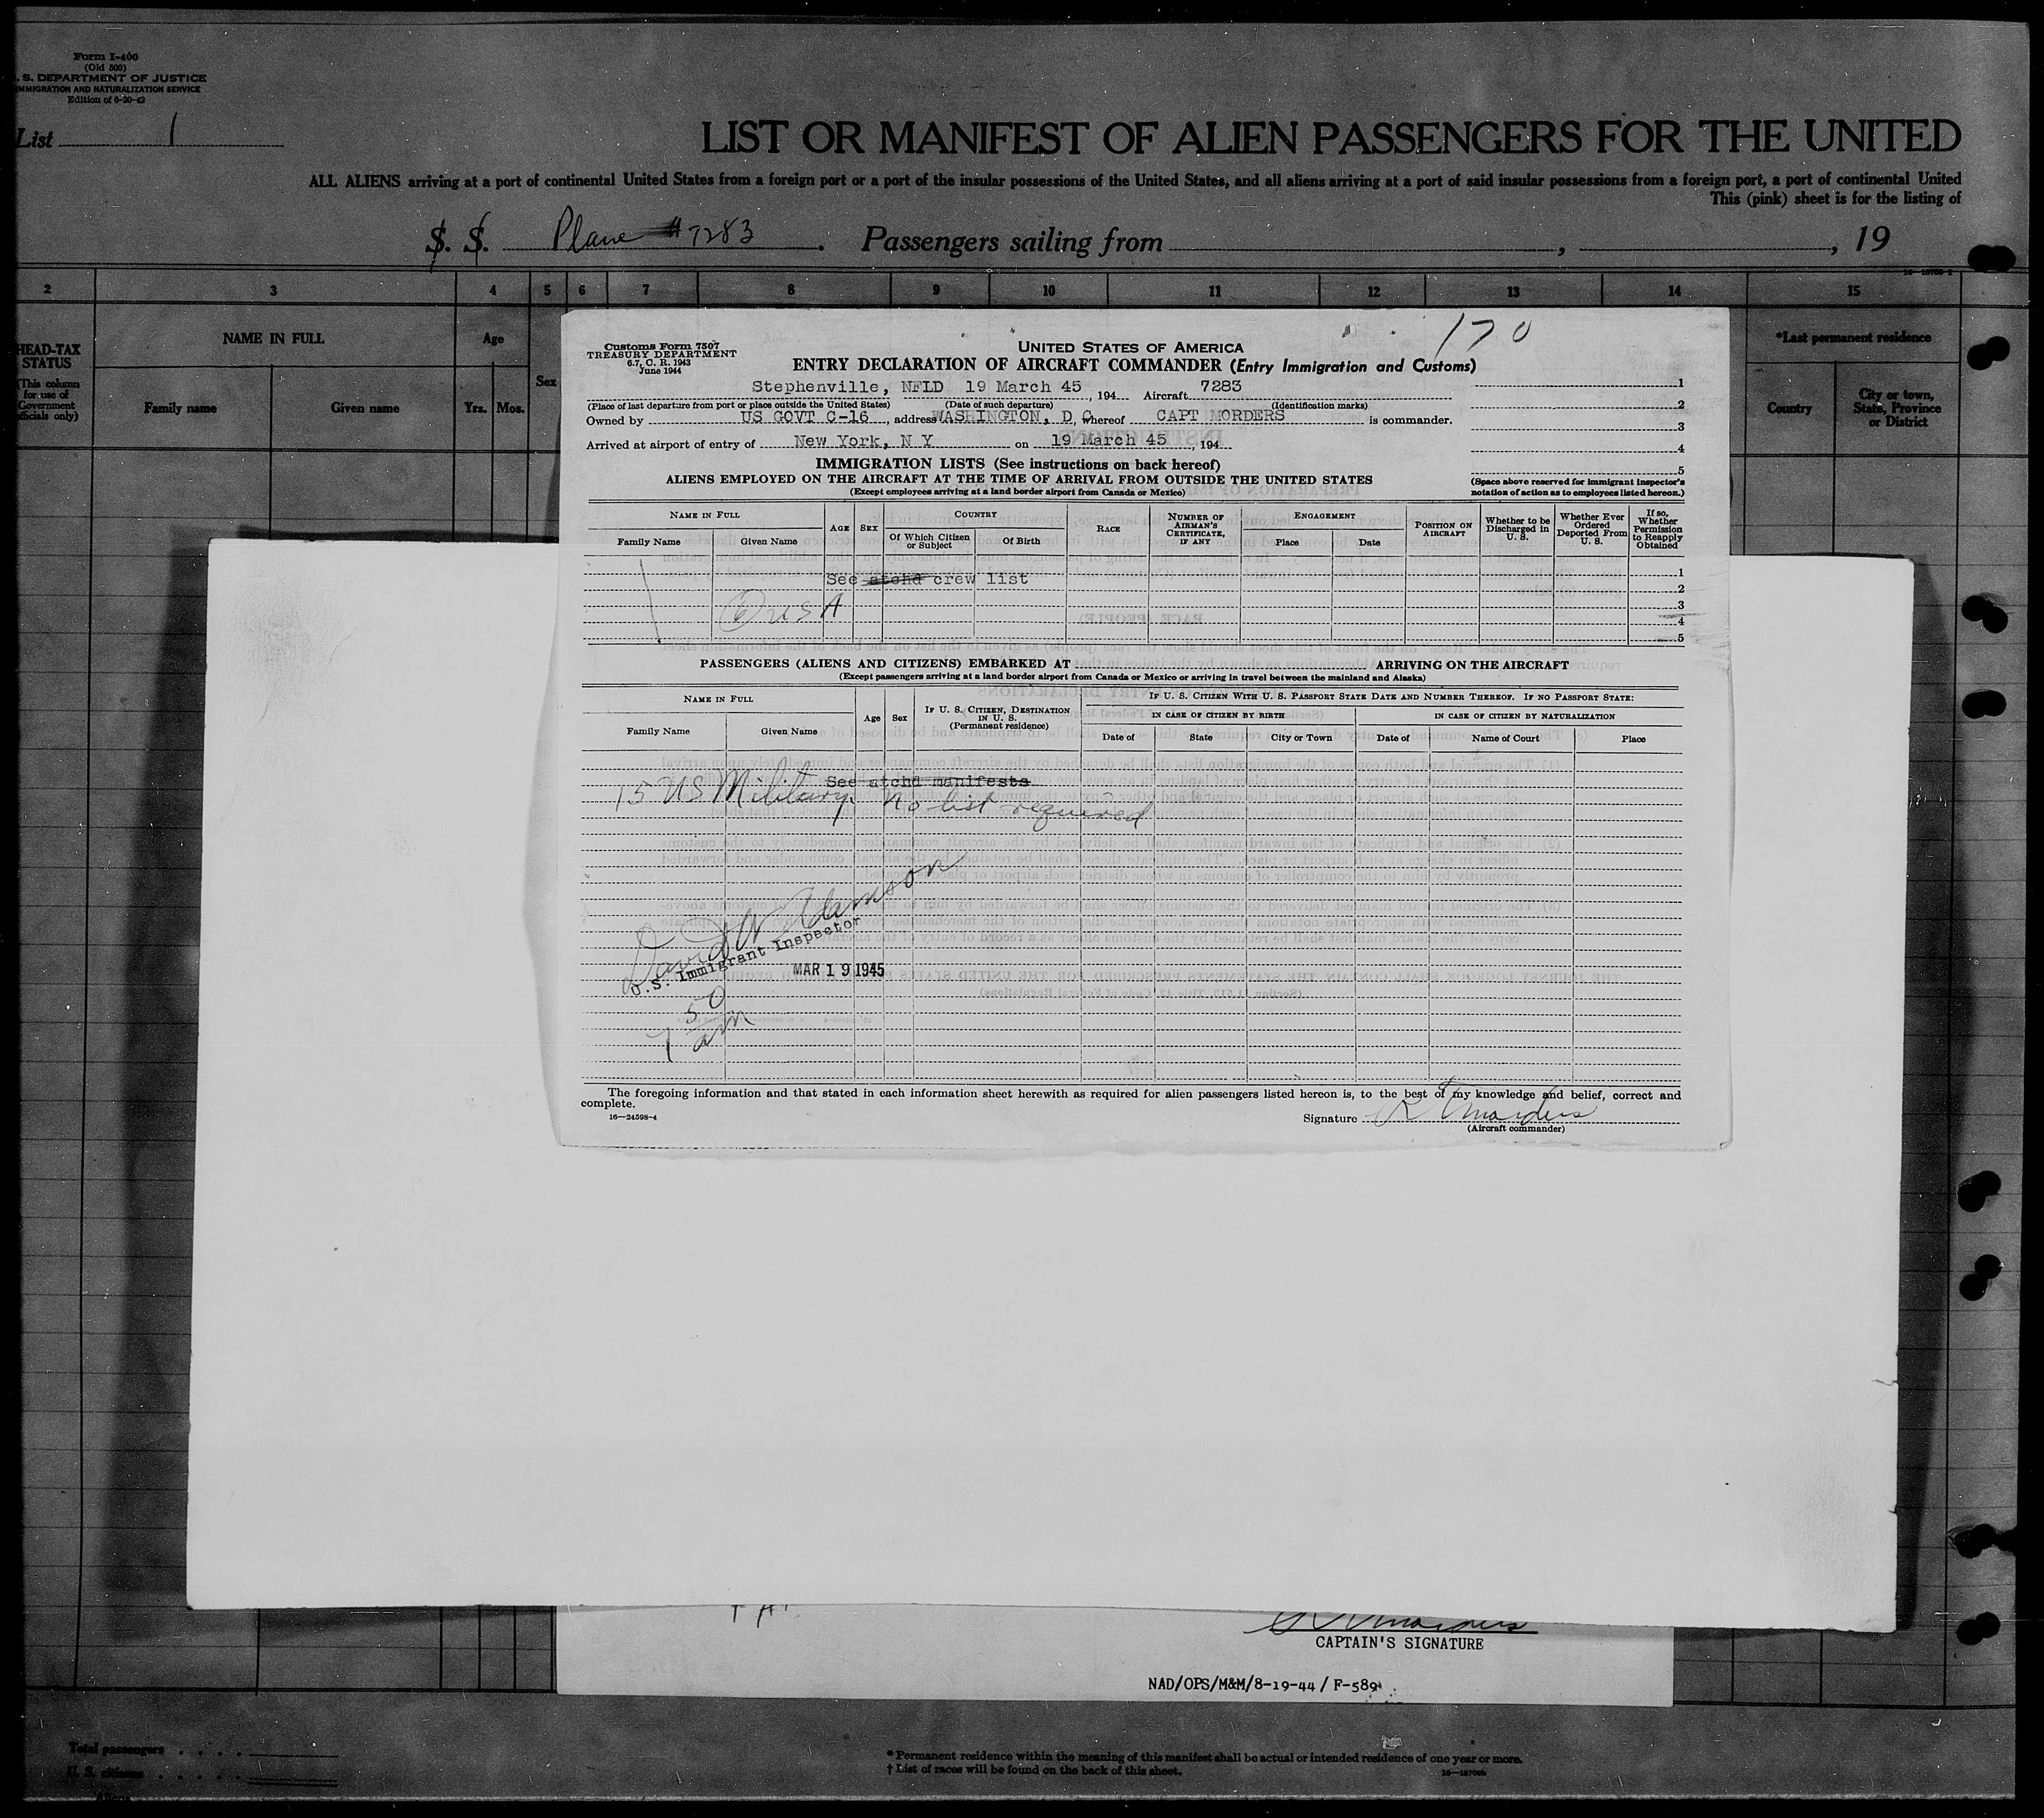 Form I-400
(Old 500)
. S. DEPARTMENT OF JUSTICE
IMMIGRATION AND NATURALIZATION SERVICE
Edition of 6-20-42
List 1
LIST OR MANIFEST OF ALIEN PASSENGERS FOR THE UNITED
ALL ALIENS arriving at a port of continental United States from a foreign port or a port of the insular possessions of the United States, and all aliens arriving at a port of said insular possessions from a foreign port, a port of continental United
This (pink) sheet is for the listing of
S. S. Plane # 7283. Passengers sailing from , , 19
2 3 4 5 6 7 8 9 10 11 12 13 14 15
HEAD-TAX STATUS
(This column for use of Government officials only)
NAME IN FULL
Family name Given name
Age
Yrs. Mos.
Sex
*Last permanent residence
Country
City or town, State, Province or District
170
Customs Form 7507
TREASURY DEPARTMENT
6.7, C. R. 1943
June 1944
UNITED STATES OF AMERICA
ENTRY DECLARATION OF AIRCRAFT COMMANDER (Entry Immigration and Customs)
Stephenville, NFLD 19 March 45, 194 Aircraft 7283
(Place of last departure from port or place outside the United States) (Date of such departure) (Identification marks)
Owned by US GOVT C-16, address WASHINGTON, D C, whereof CAPT MORDERS is commander.
Arrived at airport of entry of New York, N Y on 19 March 45, 194
1
2
3
4
5
(Space above reserved for immigrant inspector's notation of action as to employees listed hereon.)
IMMIGRATION LISTS (See instructions on back hereof)
ALIENS EMPLOYED ON THE AIRCRAFT AT THE TIME OF ARRIVAL FROM OUTSIDE THE UNITED STATES
(Except employees arriving at a land border airport from Canada or Mexico)
NAME IN FULL
Family Name Given Name
AGE SEX
COUNTRY
Of Which Citizen or Subject Of Birth
RACE
NUMBER OF AIRMAN'S CERTIFICATE, IF ANY
ENGAGEMENT
Place Date
POSITION ON AIRCRAFT
Whether to be Discharged in U. S.
Whether Ever Ordered Deported From U. S.
If so, Whether Permission to Reapply Obtained
See atchd crew list
6 USA
1
2
3
4
5
PASSENGERS (ALIENS AND CITIZENS) EMBARKED AT ARRIVING ON THE AIRCRAFT
(Except passengers arriving at a land border airport from Canada or Mexico or arriving in travel between the mainland and Alaska)
NAME IN FULL
Family Name Given Name
Age Sex
IF U. S. CITIZEN, DESTINATION IN U. S.
(Permanent residence)
IF U. S. CITIZEN WITH U. S. PASSPORT STATE DATE AND NUMBER THEREOF. IF NO PASSPORT STATE:
IN CASE OF CITIZEN BY BIRTH IN CASE OF CITIZEN BY NATURALIZATION
Date of State City or Town Date of Name of Court Place
See atchd manifests
15 US Military. No list required
David W Adamson
U.S. Immigrant Inspector
MAR 19 1945
7 50 am
The foregoing information and that stated in each information sheet herewith as required for alien passengers listed hereon is, to the best of my knowledge and belief, correct and
complete.
16—24598-4
Signature
(Aircraft commander)
CAPTAIN'S SIGNATURE
NAD/OPS/M&M/8-19-44 / F-589
Total passengers
U. S. citizens
* Permanent residence within the meaning of this manifest shall be actual or intended residence of one year or more.
† List of races will be found on the back of this sheet.